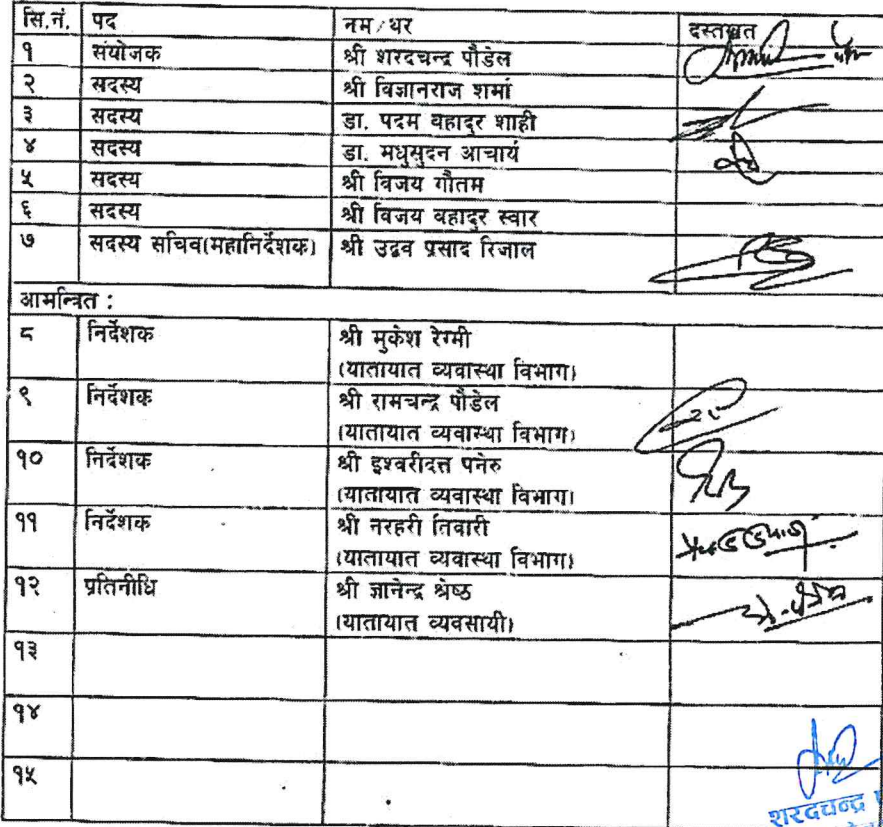 सि.नं. पद नम/थर दस्तखत
१ संयोजक श्री शरदचन्द्र पौडेल
२ सदस्य श्री विज्ञानराज शर्मा
३ सदस्य डा. पदम बहादुर शाही
४ सदस्य डा. मधुसुदन आचार्य
५ सदस्य श्री विजय गौतम
६ सदस्य श्री विजय बहादुर स्वार
७ सदस्य सचिव(महानिर्देशक) श्री उद्वव प्रसाद रिजाल
आमन्त्रित :
८ निर्देशक श्री मुकेश रेग्मी
(यातायात व्यवास्था विभाग)
९ निर्देशक श्री रामचन्द्र पौडेल
(यातायात व्यवास्था विभाग)
१० निर्देशक श्री इश्वरीदत्त पनेरु
(यातायात व्यवास्था विभाग)
११ निर्देशक श्री नरहरी तिवारी
(यातायात व्यवास्था विभाग)
१२ प्रतिनीधि श्री ज्ञानेन्द्र श्रेष्ठ
(यातायात व्यवसायी)
१३
१४
१५
शरदचन्द्र